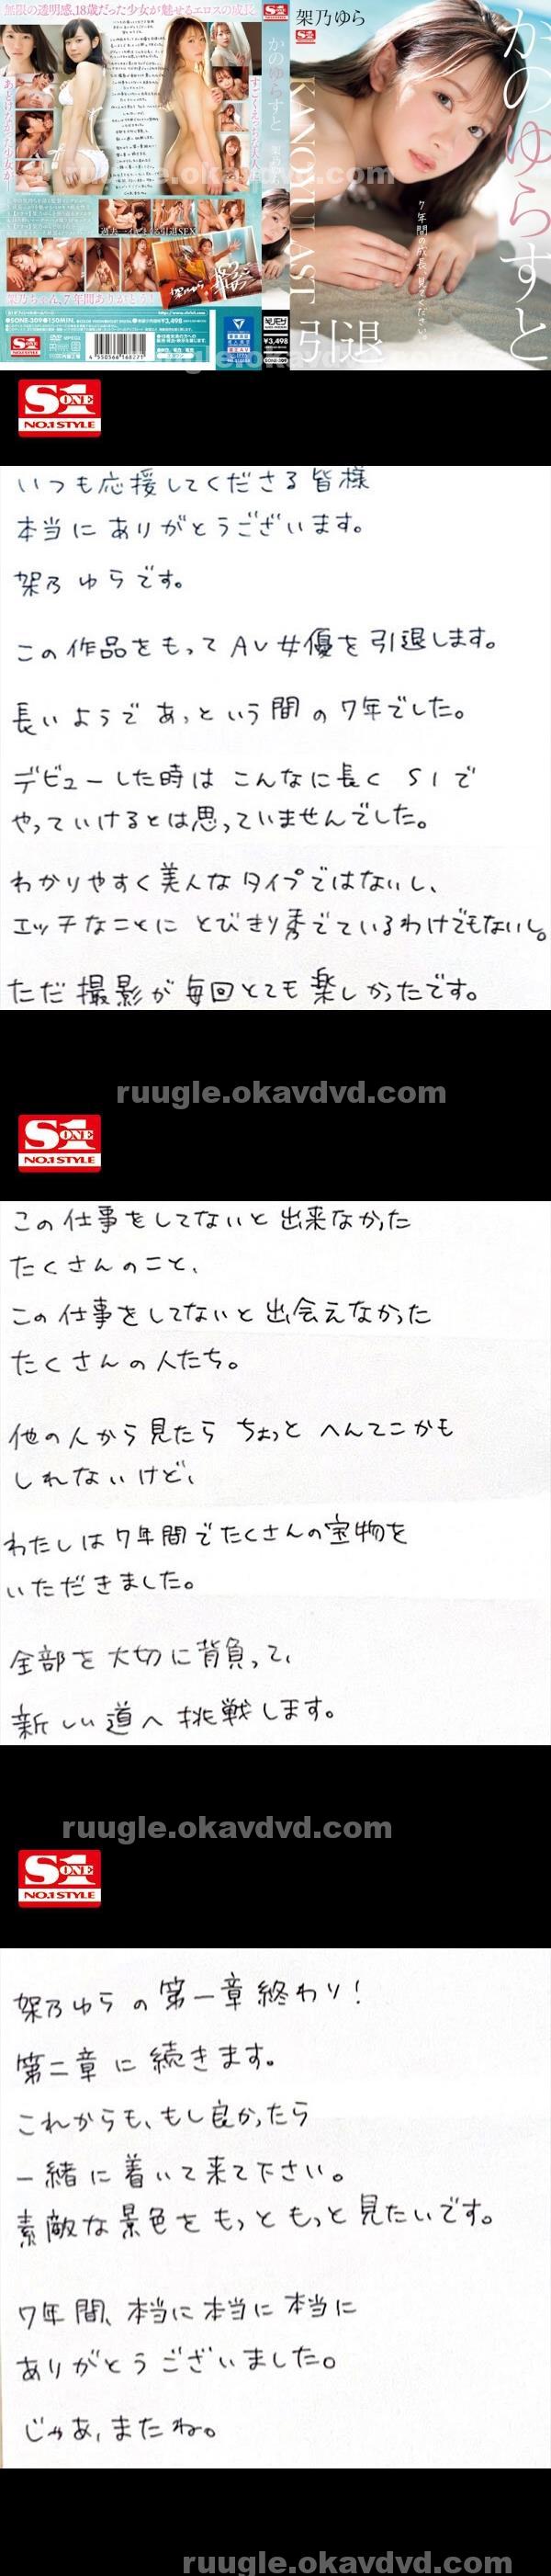 無限の透明感、18歳だった少女が魅せるエロスの成長。
架乃ゆら
かのゆらすと
KANOYULAST
7年間の成長、見てください。
引退
¥3,498
SONE-309
S1
ONE
NO.1 STYLE
いつも応援してくださる皆様
本当にありがとうございます。
架乃ゆらです。
この作品をもってAV女優を引退します。
長いようであっという間の7年でした。
デビューした時はこんなに長くS1で
やっていけるとは思っていませんでした。
わかりやすく美人なタイプではないし、
エッチなことにとびきり秀でているわけでもないし。
ただ撮影が毎回とても楽しかったです。
ruugle.okavdvd.com
S1
ONE
NO.1 STYLE
この仕事をしてないと出来なかった
たくさんのこと、
この仕事をしてないと出会えなかった
たくさんの人たち。
他の人から見たらちょっとへんてこかも
しれないけど、
わたしは7年間でたくさんの宝物を
いただきました。
全部を大切に背負って、
新しい道へ挑戦します。
ruugle.okavdvd.com
S1
ONE
NO.1 STYLE
架乃ゆらの第一章終わり!
第二章に続きます。
これからも、もし良かったら
一緒に着いて来て下さい。
素敵な景色をもっともっと見たいです。
7年間、本当に本当に本当に
ありがとうございました。
じゃあ、またね。
ruugle.okavdvd.com